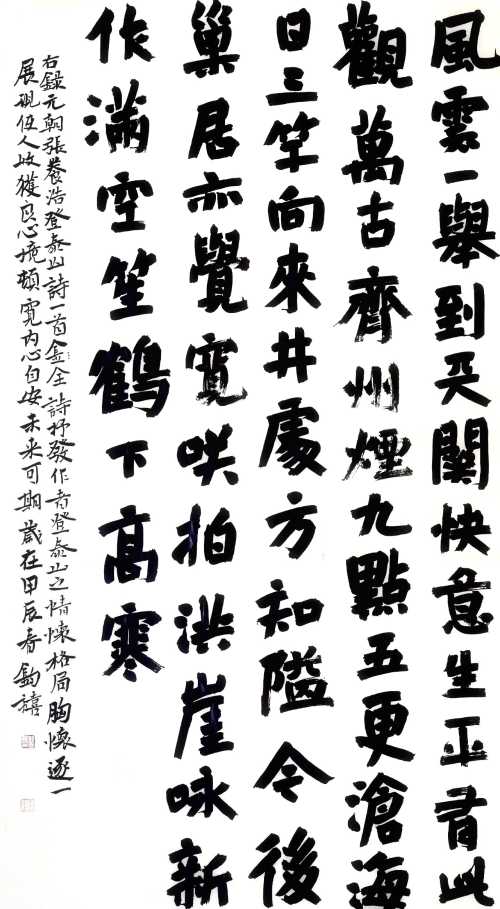 風雲一舉到天關快意生平有此
觀萬古齊州煙九點五更滄海
日三竿向來井處方知隘今後
巢居亦覺寬咲拍洪崖咏新
作滿空笙鶴下高寒
右錄元朝張養浩登泰山詩一首全詩抒發作者登泰山之情懷格局胸懷逐一
展現使人收獲良心境頓寬內心自安未來可期歲在甲辰春鈞禧